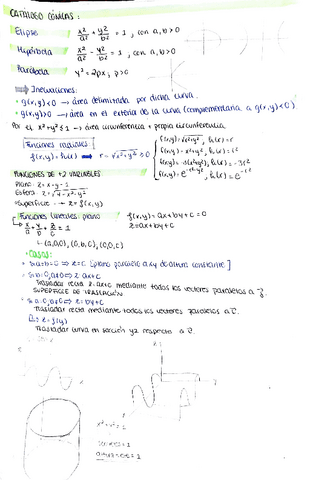 CATÁLOGO CÓNICAS:
Elipse x²/a² + y²/b² = 1, con a,b>0
Hipérbola x²/a² - y²/b² = 1, con a,b>0
Parábola y² = 2px; p>0
Inecuaciones:
• g(x,y)<0 → área delimitada por dicha curva.
• g(x,y)>0 → área en el exterior de la curva (complementaria a g(x,y)<0).
Por ej. x²+y² ≤ 1 → área circunferencia + propia circunferencia.
Funciones radiales
f(x,y) = h(r) ⇔ r = √x²+y² ≥ 0
f(x,y) = √x²+y², h(r) = r
f(x,y) = x²+y², h(r) = r²
f(x,y) = -3(x²+y²), h(r) = -3r²
FUNCIONES DE +2 VARIABLES
Plano: z = x-y-1
Esfera: z = √4-x²-y²
• Superficie: → z = f(x,y)
Funciones lineales: plano f(x,y) = ax+by+c = 0
z = ax+by+c
x/a + y/b + z/c = 1
↳ (a,0,0), (0,b,0), (0,0,c)
• Casos:
• Si a=b=0 ⇒ z=c [plano paralelo a xy de altura constante]
• Si b=0, a≠0 ⇒ z=ax+c
Trasladar recta z=ax+c mediante todos los vectores paralelos a
SUPERFICIE DE TRASLACIÓN.
• Si a=0, b≠0 ⇒ z=by+c
Trasladar recta mediante todos los vectores paralelos a
z = f(y)
Trasladar curva en sección yz respecto a
x²+y²=1